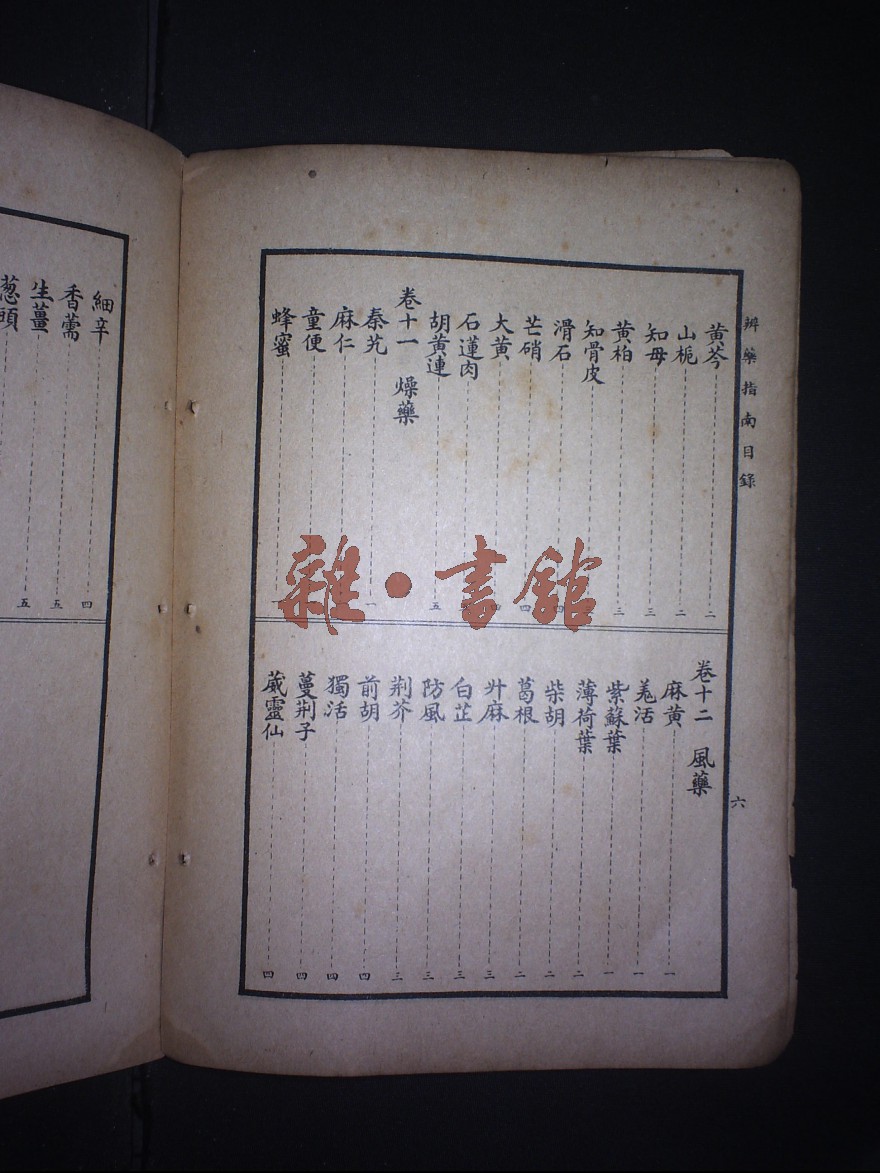 辨藥指南目錄
六
黃芩 二
山梔 二
知母 三
黃柏 三
知骨皮
滑石 四
芒硝 四
大黃 四
石蓮肉
胡黃連 五
卷十一 燥藥
秦艽 一
麻仁
童便
蜂蜜
卷十二 風藥
麻黃 一
羗活 一
紫蘇葉 一
薄荷葉 二
柴胡 二
葛根 二
升麻 三
白芷 三
防風 三
荆芥 三
前胡 四
獨活 四
蔓荆子 四
葳靈仙 四
細辛 四
香薷 五
生薑 五
葱頭
雜·書館